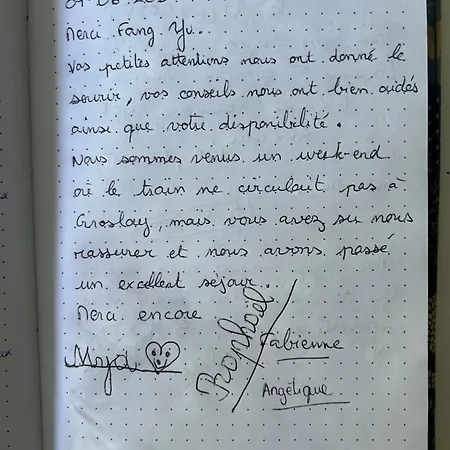 Merci Fang Yu..
Vos petites attentions nous ont donné le
sourir, vos conseils nous ont bien aidés
ainsi que votre disponibilité.
Nous sommes venus un week-end
où le train ne circulait pas à
Groslay, mais vous avez su nous
rassurer et nous avons passé
un excellent séjour..
Merci encore
Raphaël
Fabienne
Angélique